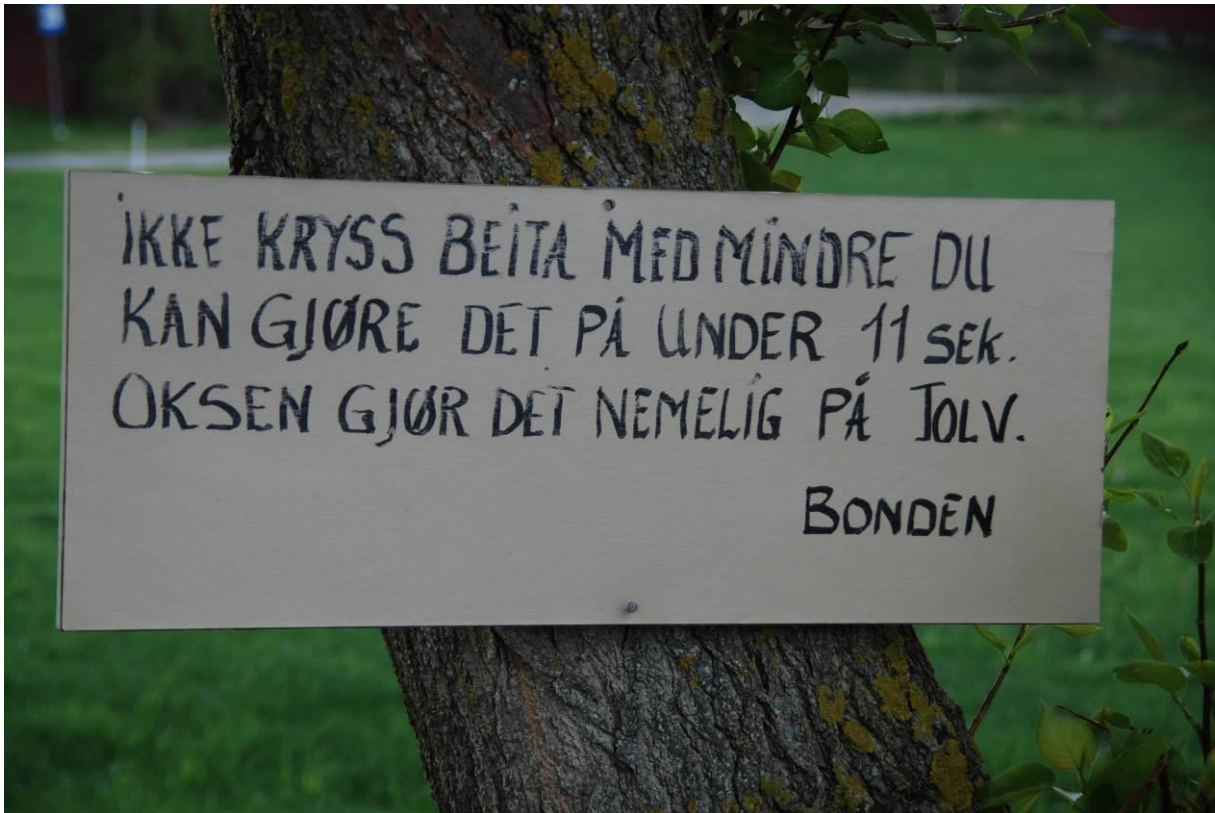 iKKE KRYSS BEiTA MED MiNDRE DU
KAN GJØRE DET PÅ UNDER 11 SEK.
OKSEN GJØR DET NEMELiG PÅ TOLV.
BONDEN